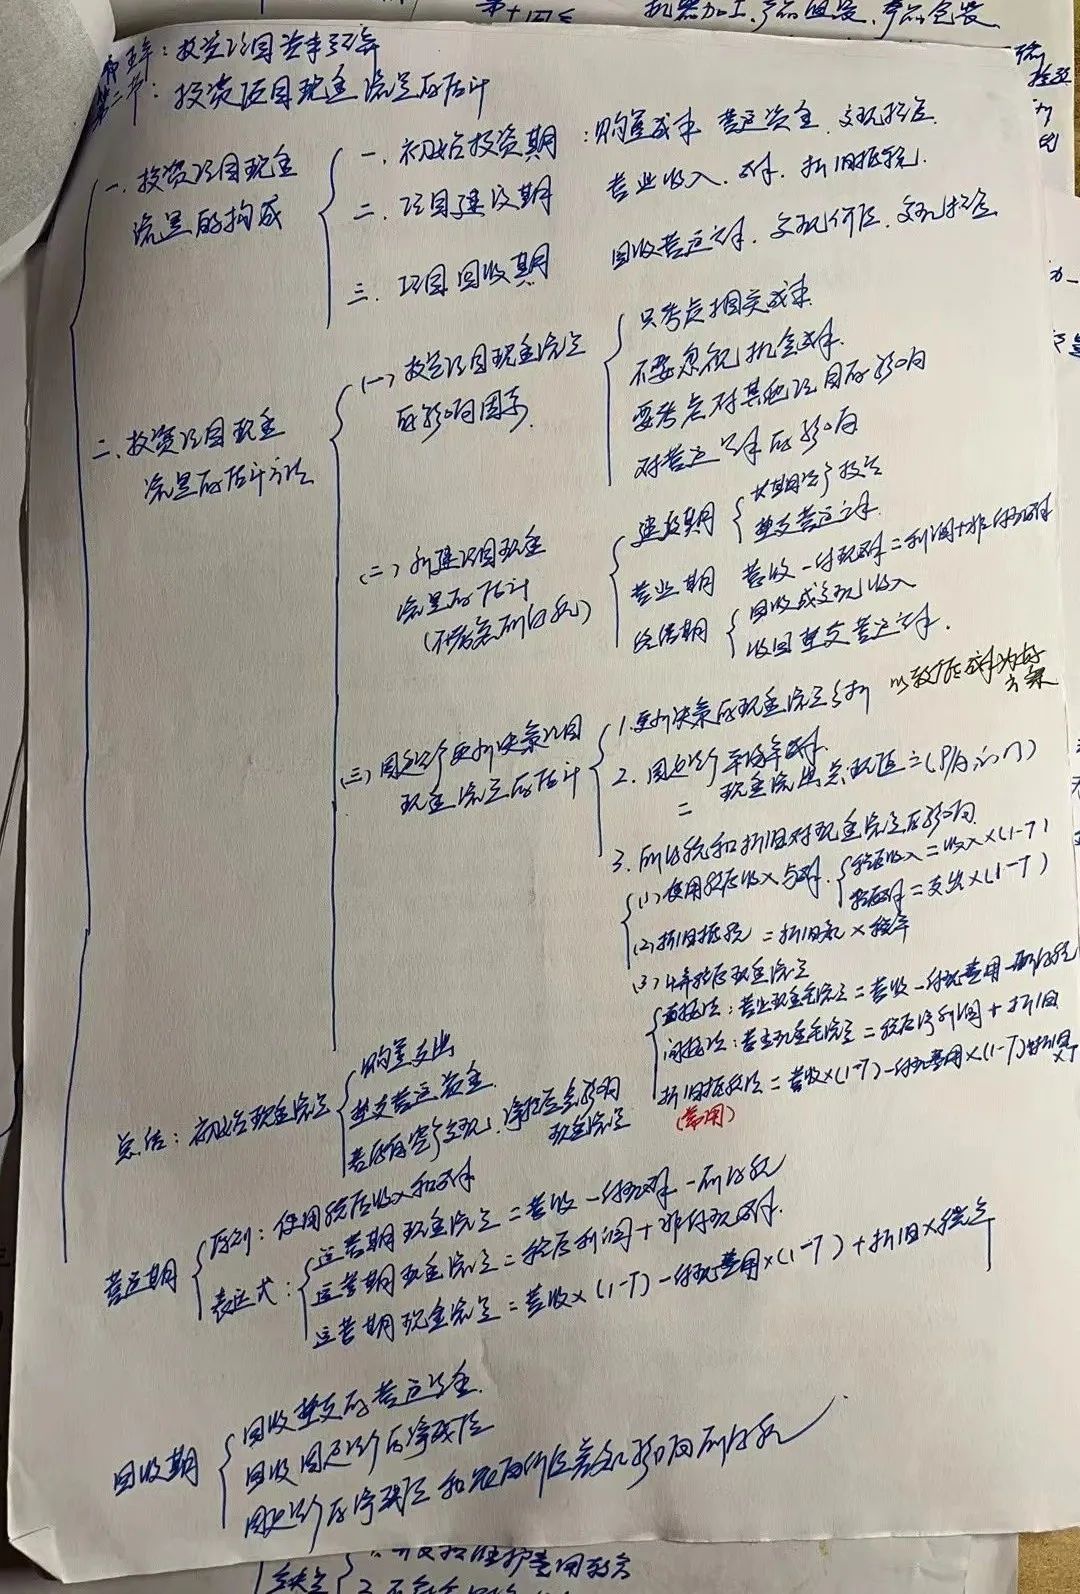 机器加工,产品组装,产品包装
第五章:投资项目资本预算
第二节:投资项目现金流量的估计
一、投资项目现金
流量的构成
一、初始投资期:购置成本 营运资金、变现抵信
二、项目建设期 营业收入、成本、折旧抵税.
三、项目回收期 回收营运成本、变现价值、变现抵信
二、投资项目现金
流量的估计方法
(一)投资项目现金流量
的影响因素
只考虑相关成本
不要忽视机会成本
要考虑对其他项目的影响
对营运资本的影响
(二)新建项目现金
流量的估计
(不考虑所得税)
建设期 长期资产投资
垫支营运资本
营业期 营收-付现成本=利润+非付现成本
终结期 回收成变现收入
收回垫支营运资本.
(三)固定资产更新决策项目
现金流量的估计
1.更新决策的现金流量分析 以较低成本为好
方案
2.固定资产平均年成本
= 现金流出总现值÷(P/A,i,n)
3.所得税和折旧对现金流量的影响
(1)使用税后收入与成本. 税后收入=收入×(1-T)
税后成本=支出×(1-T)
(2)折旧抵税=折旧额×税率
(3)计算税后现金流量
直接法:营业现金毛流量=营收-付现费用-所得税
间接法:营业现金毛流量=税后净利润+折旧
折旧抵税法=营收×(1-T)-付现费用×(1-T)+折旧
×T
(常用)
总结:初始现金流量
购置支出
垫支营运资金.
若旧有资产变现,净损益会影响
现金流量
营运期
原则:使用税后收入和成本
表达式:运营期现金流量=营收-付现成本-所得税
运营期现金流量=税后利润+非付现成本.
运营期现金流量=营收×(1-T)-付现费用×(1-T)+折旧×税率
回收期
回收垫支的营运资金.
回收固定资产的净残值
固定资产的净残值和账面价值差额影响所得税